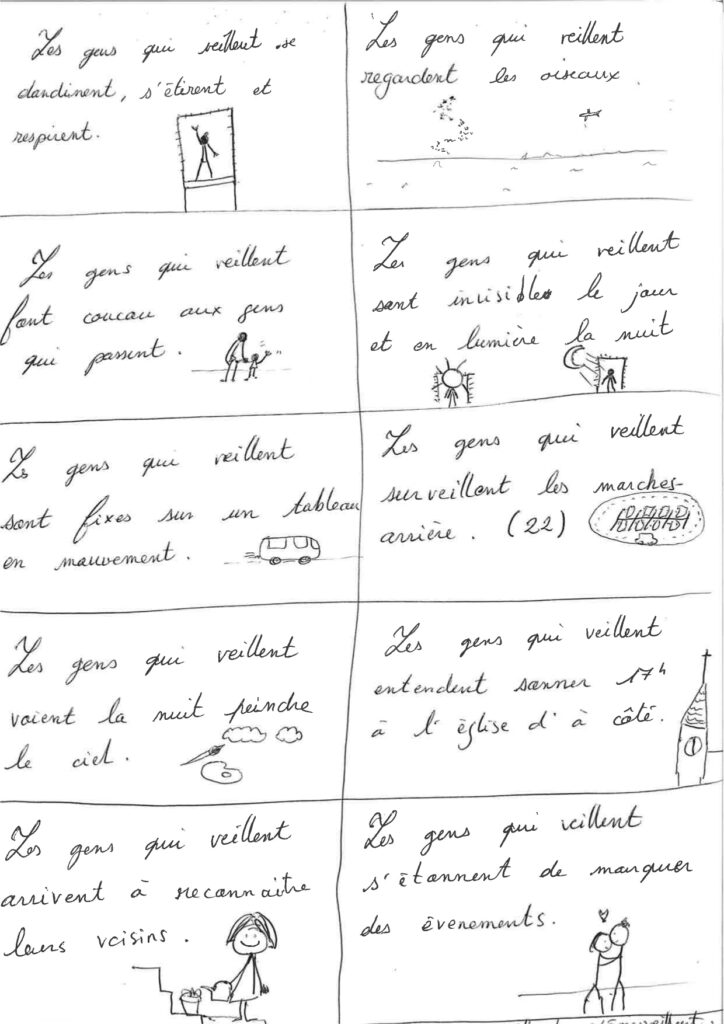 Les gens qui veillent se
dandinent, s'étirent et
respirent.
Les gens qui veillent
regardent les oiseaux.
Les gens qui veillent
font coucou aux gens
qui passent.
Les gens qui veillent
sont invisibles le jour
et en lumière la nuit
Les gens qui veillent
sont fixes sur un tableau
en mouvement.
Les gens qui veillent
surveillent les marches-
arrière. (22)
Les gens qui veillent
voient la nuit peindre
le ciel.
Les gens qui veillent
entendent sonner 17h
à l'église d'à côté.
Les gens qui veillent
arrivent à reconnaitre
leurs voisins.
Les gens qui veillent
s'étonnent de manquer
des évenements.